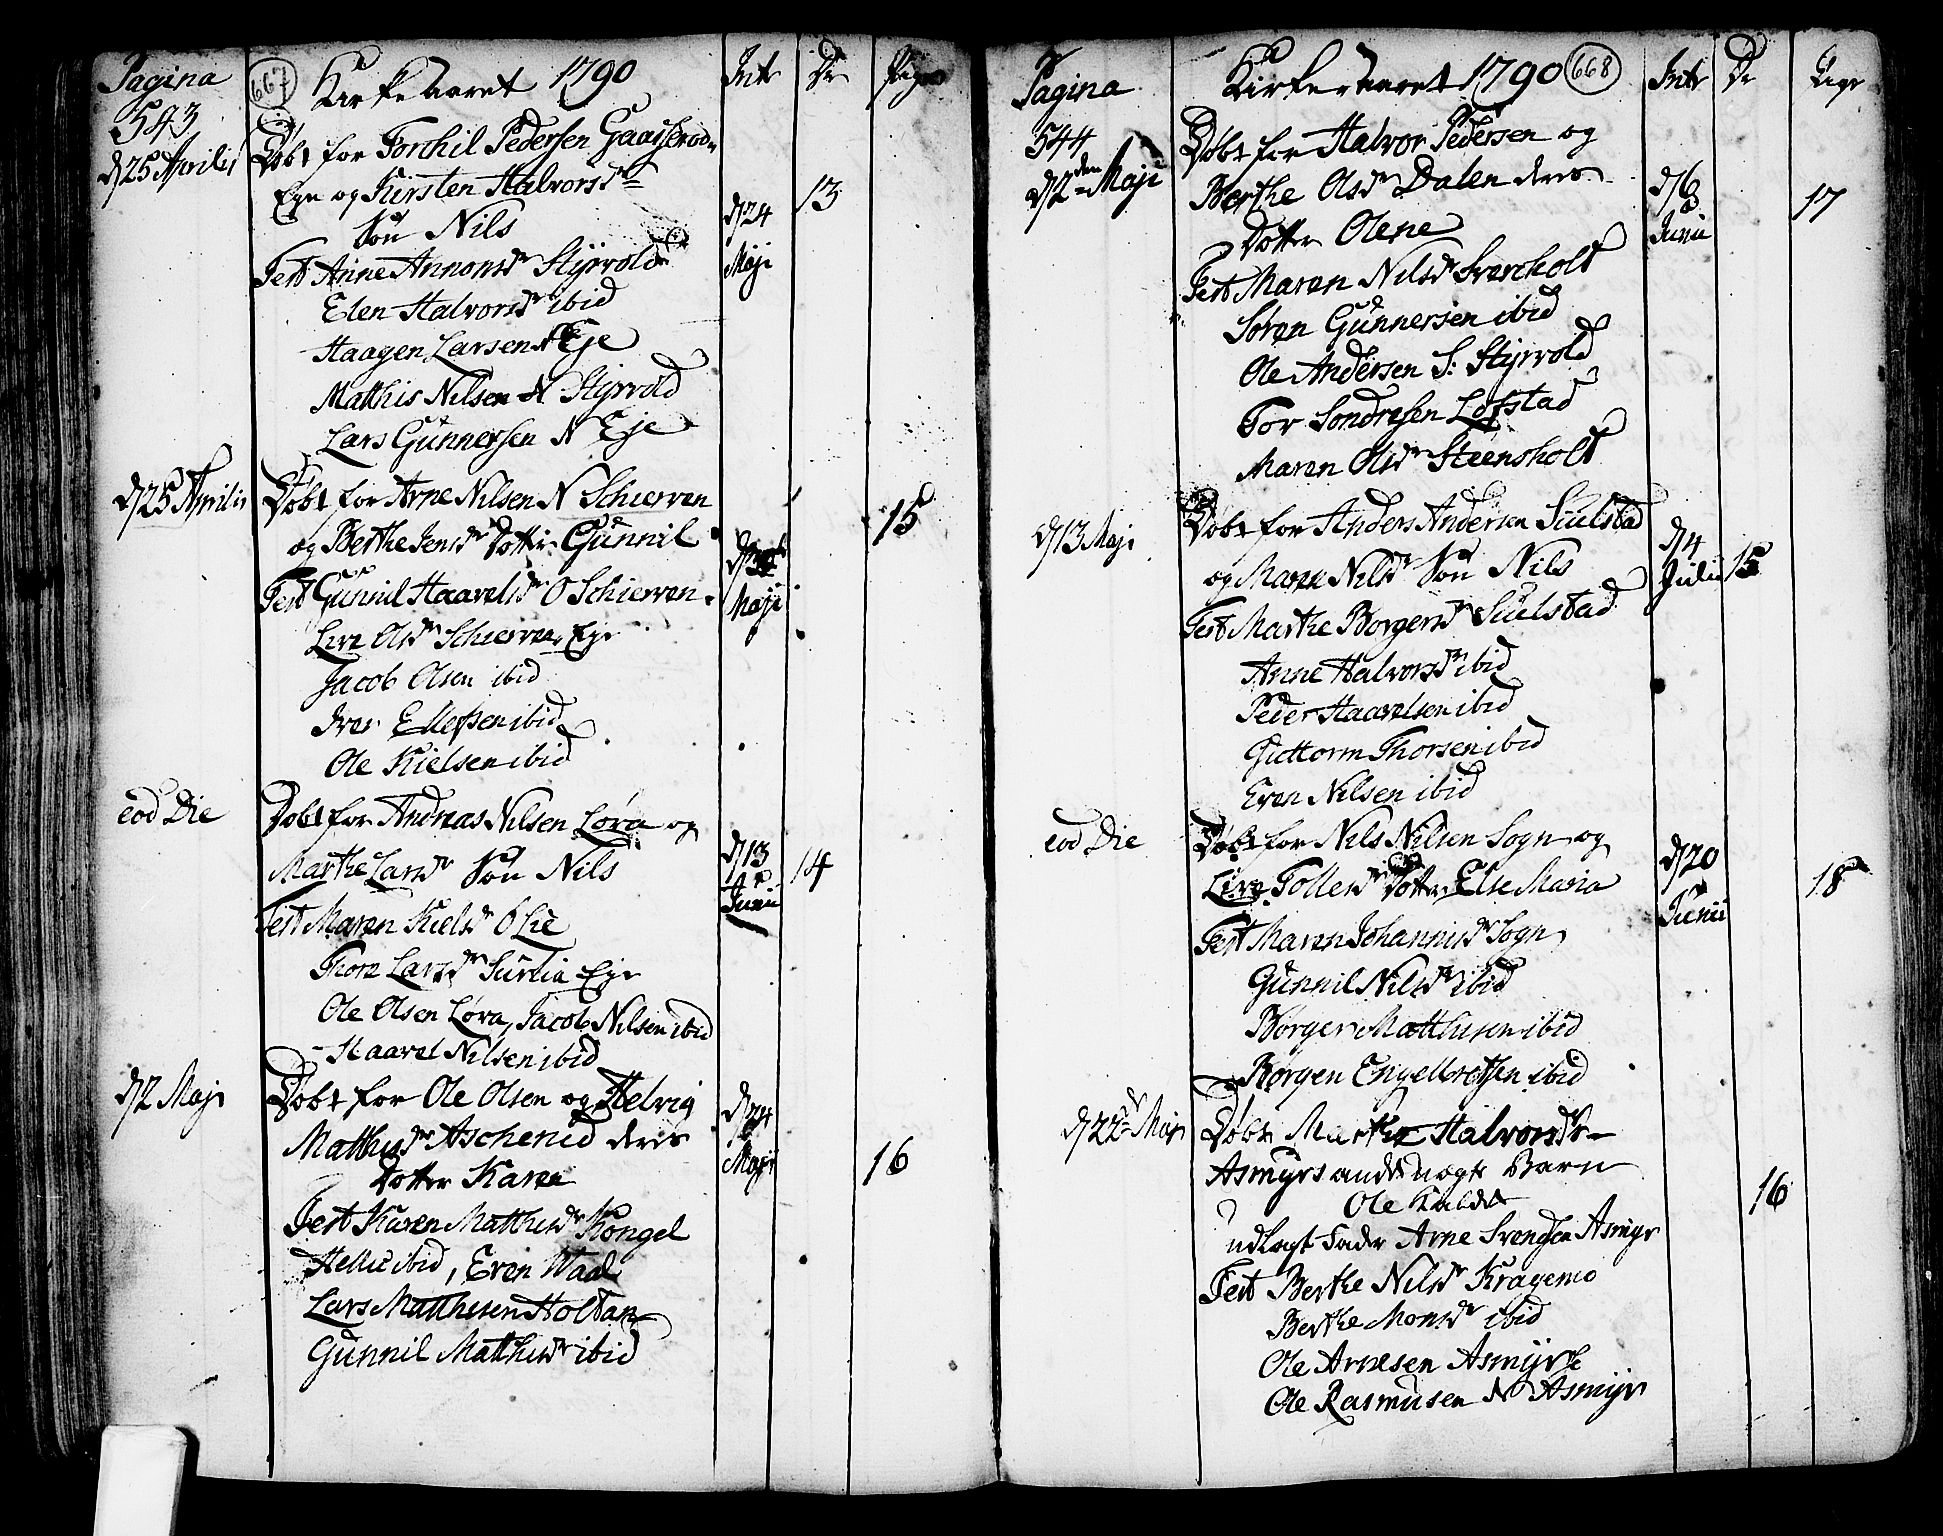 Pagina 543
667
Kirkeaaret 1790
Intr
Dr
Piger
d/25 Aprilis
Døbt for Torchil Pedersen Gaasserød
Eye og Kirsten Halvorsdr
Søn Nils
d/24 Maji
13
Test Anne Annonsdr Styrvold
Elen Halvorsdr ibid
Haagen Larsen Eje
Matthis Nilsen N Styrvold
Lars Gunnersen N Eje
d/25 Aprilis
Døbt for Arne Nilsen N Schierven
og Berthe Jensdr Dotter Gunnil
Maji
15
Test Gunnil Haavelsdr O Schierven
Live Olsdr Schierven Eje
Jacob Olsen ibid
Iver Ellefsen ibid
Ole Kielsen ibid
eod Die
Døbt for Andreas Nilsen Løva og
Marthe Larsdr Søn Nils
d/13 Junii
14
Test Maren Kielsdr O Lie
Thore Larsdr Surlia Eye
Ole Olsen Løva, Jacob Nilsen ibid
Haavel Nilsen ibid
d/2 Maji
Døbt for Ole Olsen og Helvig
Matthisdr Aschenid deres
Dotter Karen
d/24 Maji
16
Test Karen Matthisdr Kongel
Hellie ibid, Even Waal
Lars Matthisen Holtan
Gunnil Matthisdr ibid
Pagina 544
Kirkeaaret 1790
668
Intr
Dr
Pige
d/2den Maji
Døbt for Halvor Pedersen og
Berthe Olsdr Dalen deres
Dotter Olene
d/6 Junii
17
Test Maren Nilsdr Svercholt
Søren Gunnersen ibid
Ole Andersen S: Styrvold
Tor Sondresen Løfstad
Maren Olsdr Steensholt
d/13 Maji
Døbt for Anders Andersen Suulstad
og Maren Nilsdr Søn Nils
d/4 Julii
15
Test Marthe Borgersdr Suulstad
Anne Halvorsdr ibid
Peder Haavelsen ibid
Guttorm Thorsen ibid
Even Nilsen ibid
eod Die
Døbt for Nils Nilsen Sogn og
Live Tollevsdr Dotter Else Maria
d/20 Junii
18
Test Maren Johannisdr Sogn
Gunnil Nilsdr ibid
Borger Matthisen ibid
Borgen Engelbretsen ibid
d/22 Maji
Døbt Marthe Halvorsdr
Asmyrs uægte Barn
Ole kaldet
16
udlagt Fader Arne Svendsen Asmyr
Test Berthe Nilsdr Kragemo
Berthe Monsdr ibid
Ole Arnesen Asmyr
Ole Rasmusen N Asmyr